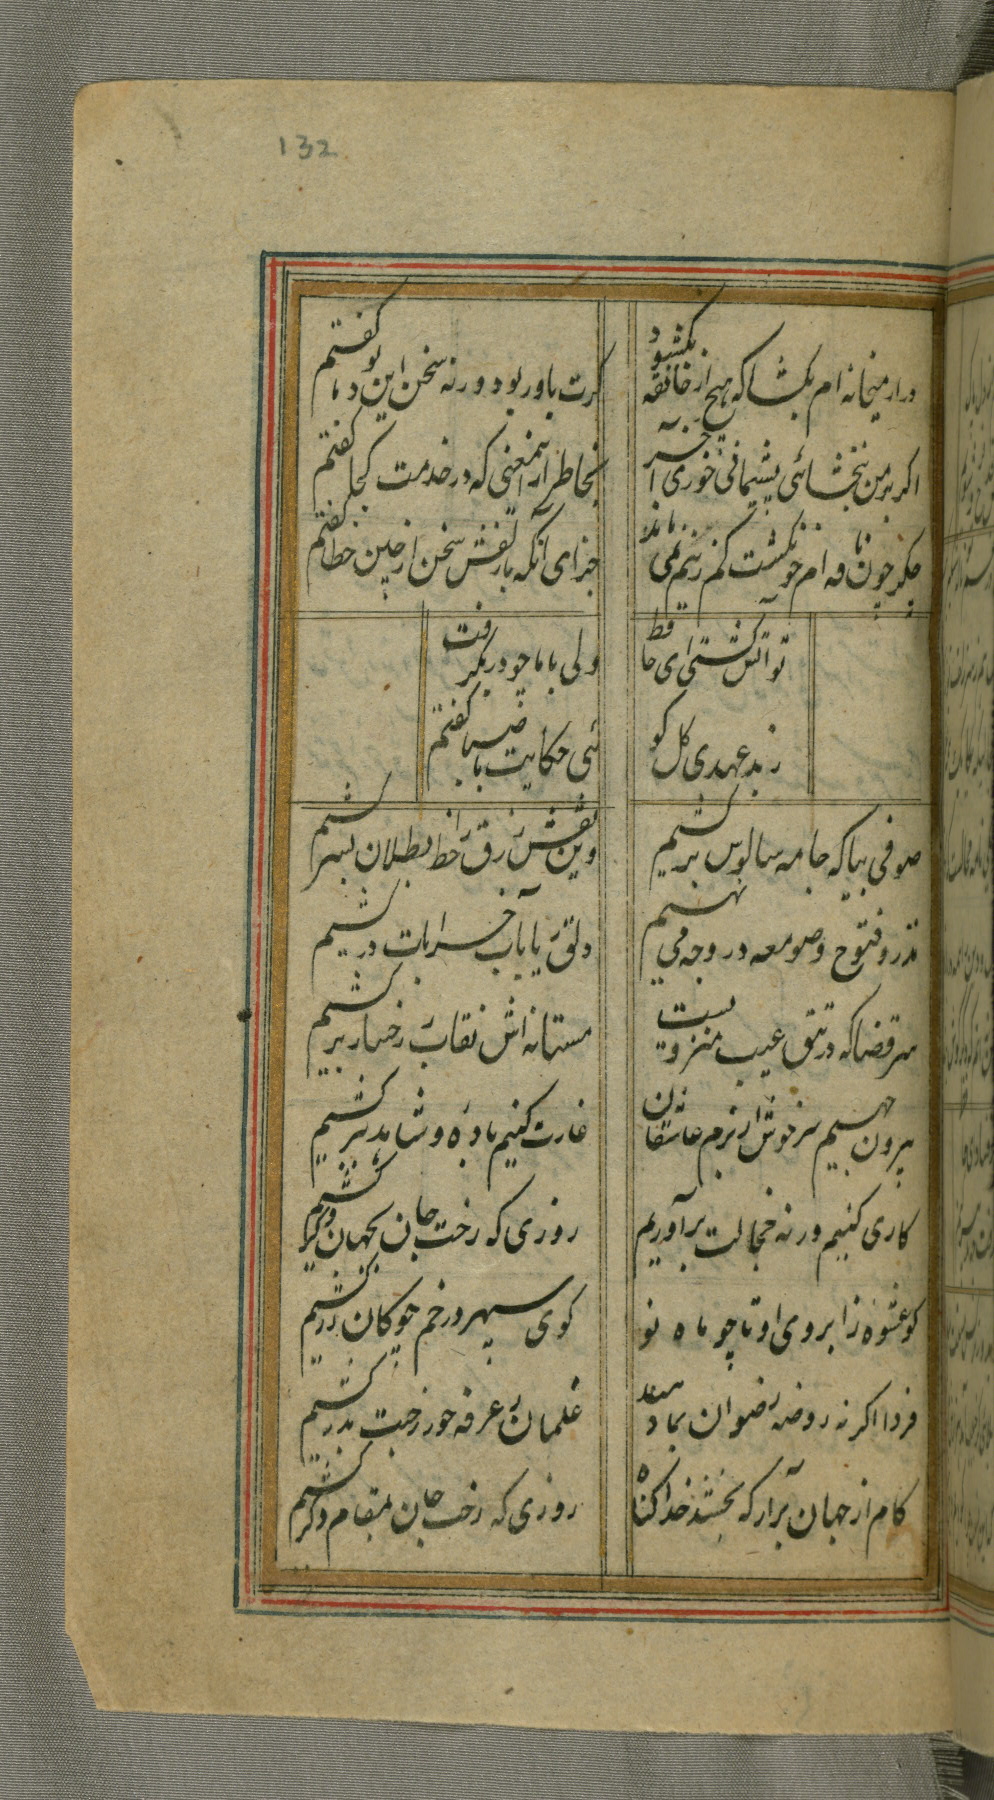 132
در ار میخانه ام بکشا که هیچ از خانقه نکشود
کرت باور بود ورنه سخن این بود ما کفتم
اکر بر من نبخشائی پشیمانی خوری آخر
بخاطر دار این معنی که در خدمت کجا کفتم
جکر چون نافه ام خون کشت کم زینم نمی باید
جزای آنکه با زلفش سخن از چین خطا کفتم
تو آتش کشتی ای حافظ
ولی با ما چو در نکرفت
ز بد عهدی کل کو
ئی حکایت با صبا کفتم
صوفی بیا که جامه سالوس بر کشیم
وین نقش زرق را خط بطلان بسر کشیم
نذر و فتوح و صومعه در وجه می نهیم
دلق ریا بآب خرابات در کشیم
سر قضا که در تتق غیب منزویست
مستانه اش نقاب ز رخسار بر کشیم
بیرون جهیم سرخوش از بزم عاشقان
غارت کنیم باده و شاهد ببر کشیم
کاری کنیم ورنه خجالت بر آوریم
روزی که رخت جان بجهان دکر کشیم
کو عشوه ز ابروی او تا چو ماه نو
کوی سپهر در خم چوکان زر کشیم
فردا اکر نه روضه رضوان بما دهند
غلمان ز غرفه حور ز جنت بدر کشیم
کام از جهان بر آر که بخشد خدا کناه
روزی که رخت جان بمقام دکر کشیم